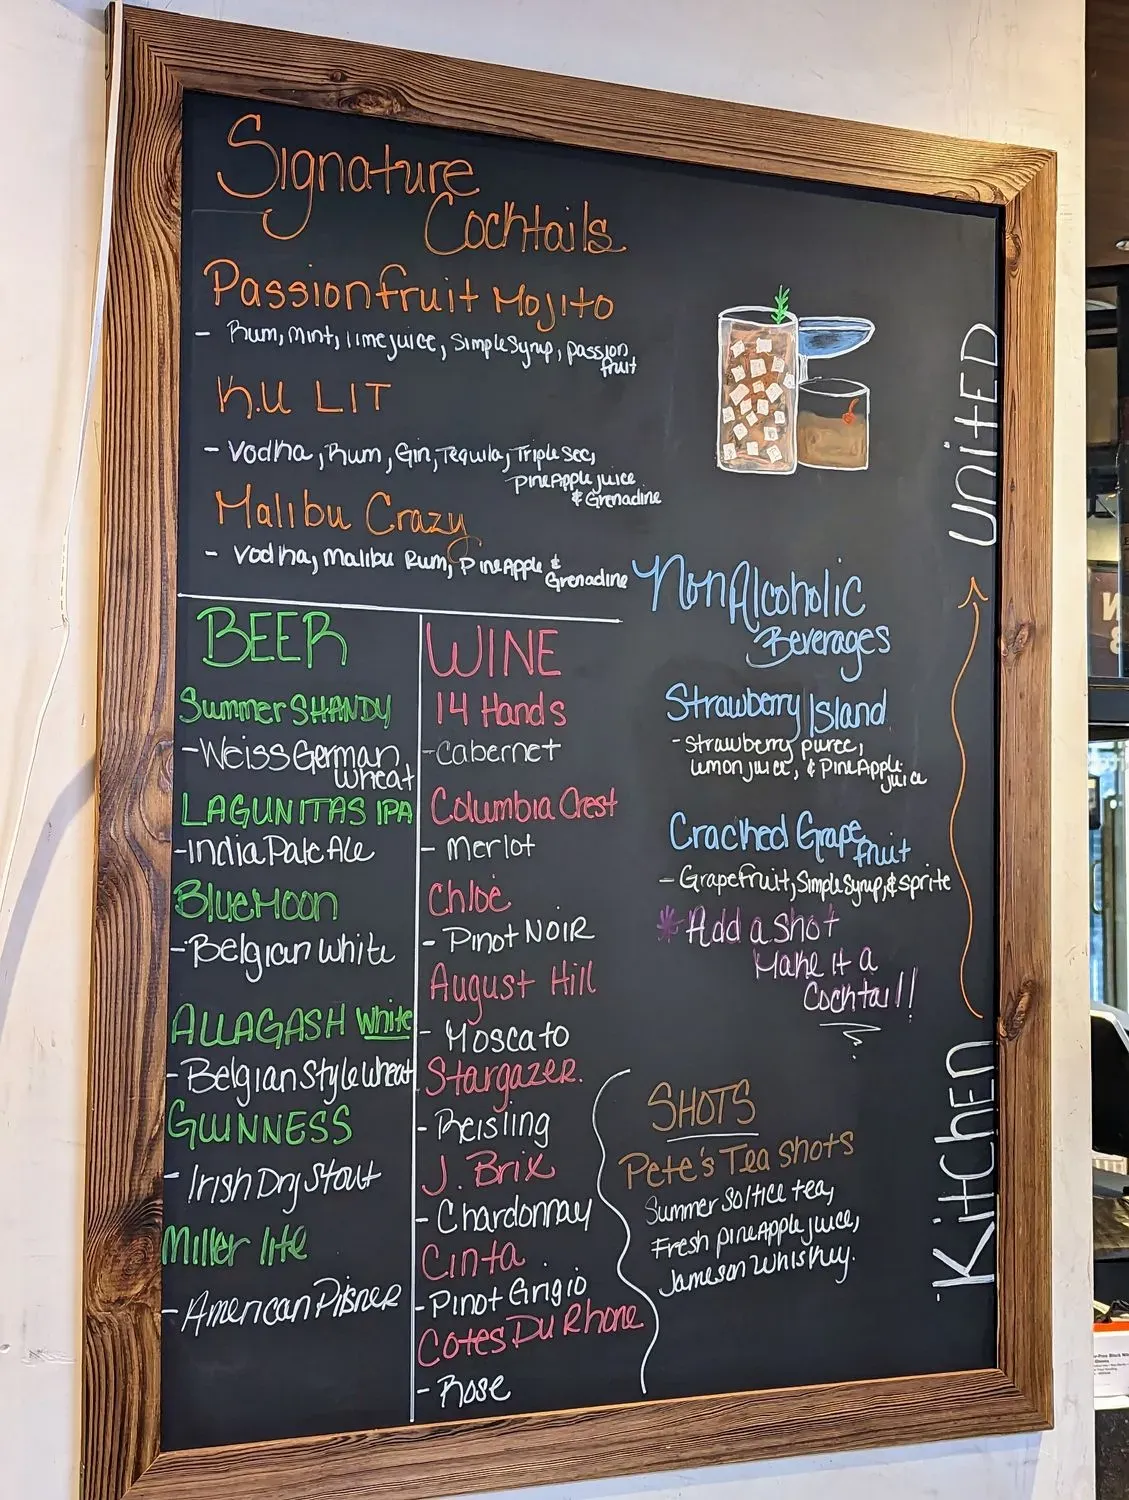 Signature
Cocktails
Passionfruit Mojito
- Rum, mint, lime juice, Simple Syrup, passion
fruit
K.U LIT
- Vodka, Rum, Gin, Tequila, Triple Sec,
PineApple juice
& Grenadine
Malibu Crazy
- Vodka, Malibu Rum, PineApple &
Grenadine
BEER
Summer SHANDY
- Weiss German
Wheat
LAGUNITAS IPA
- India Pale Ale
Blue Moon
- Belgian White
ALLAGASH White
- Belgian Style Wheat
GUINNESS
- Irish Dry Stout
Miller lite
- American Pilsner
WINE
14 Hands
- Cabernet
Columbia Crest
- Merlot
Chloe
- Pinot NOIR
August Hill
- Moscato
Stargazer.
- Reisling
J. Brix
- Chardonnay
Cinta
- Pinot Grigio
Cotes Du Rhone
- Rose
Non Alcoholic
Beverages
Strawberry Island
- Strawberry puree,
Lemon juice, & PineApple
juice
Cracked Grape
fruit
- Grapefruit, Simple Syrup, & sprite
* Add a shot
Make it a
Cocktail!
SHOTS
Pete's Tea Shots
Summer Soltice tea,
Fresh pineApple juice,
Jameson Whiskey.
KitchEN
UNitED